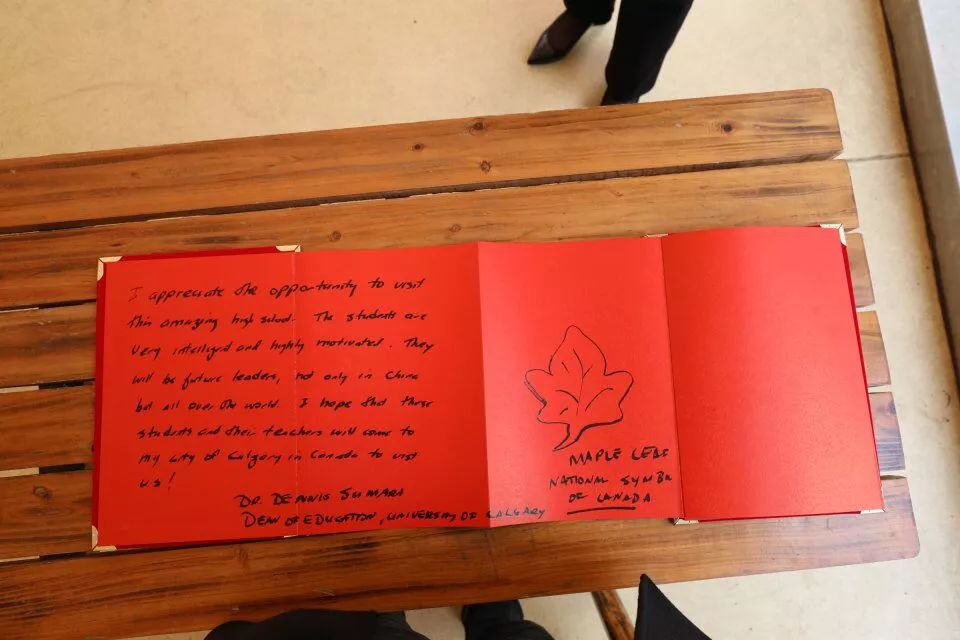 I appreciate the opportunity to visit
this amazing high school. The students are
very intelligent and highly motivated. They
will be future leaders, not only in China
but all over the world. I hope that these
students and their teachers will come to
my city of Calgary in Canada to visit
us!
DR. DENNIS SUMARA
DEAN OF EDUCATION, UNIVERSITY OF CALGARY
MAPLE LEAF
NATIONAL SYMBOL
OF CANADA